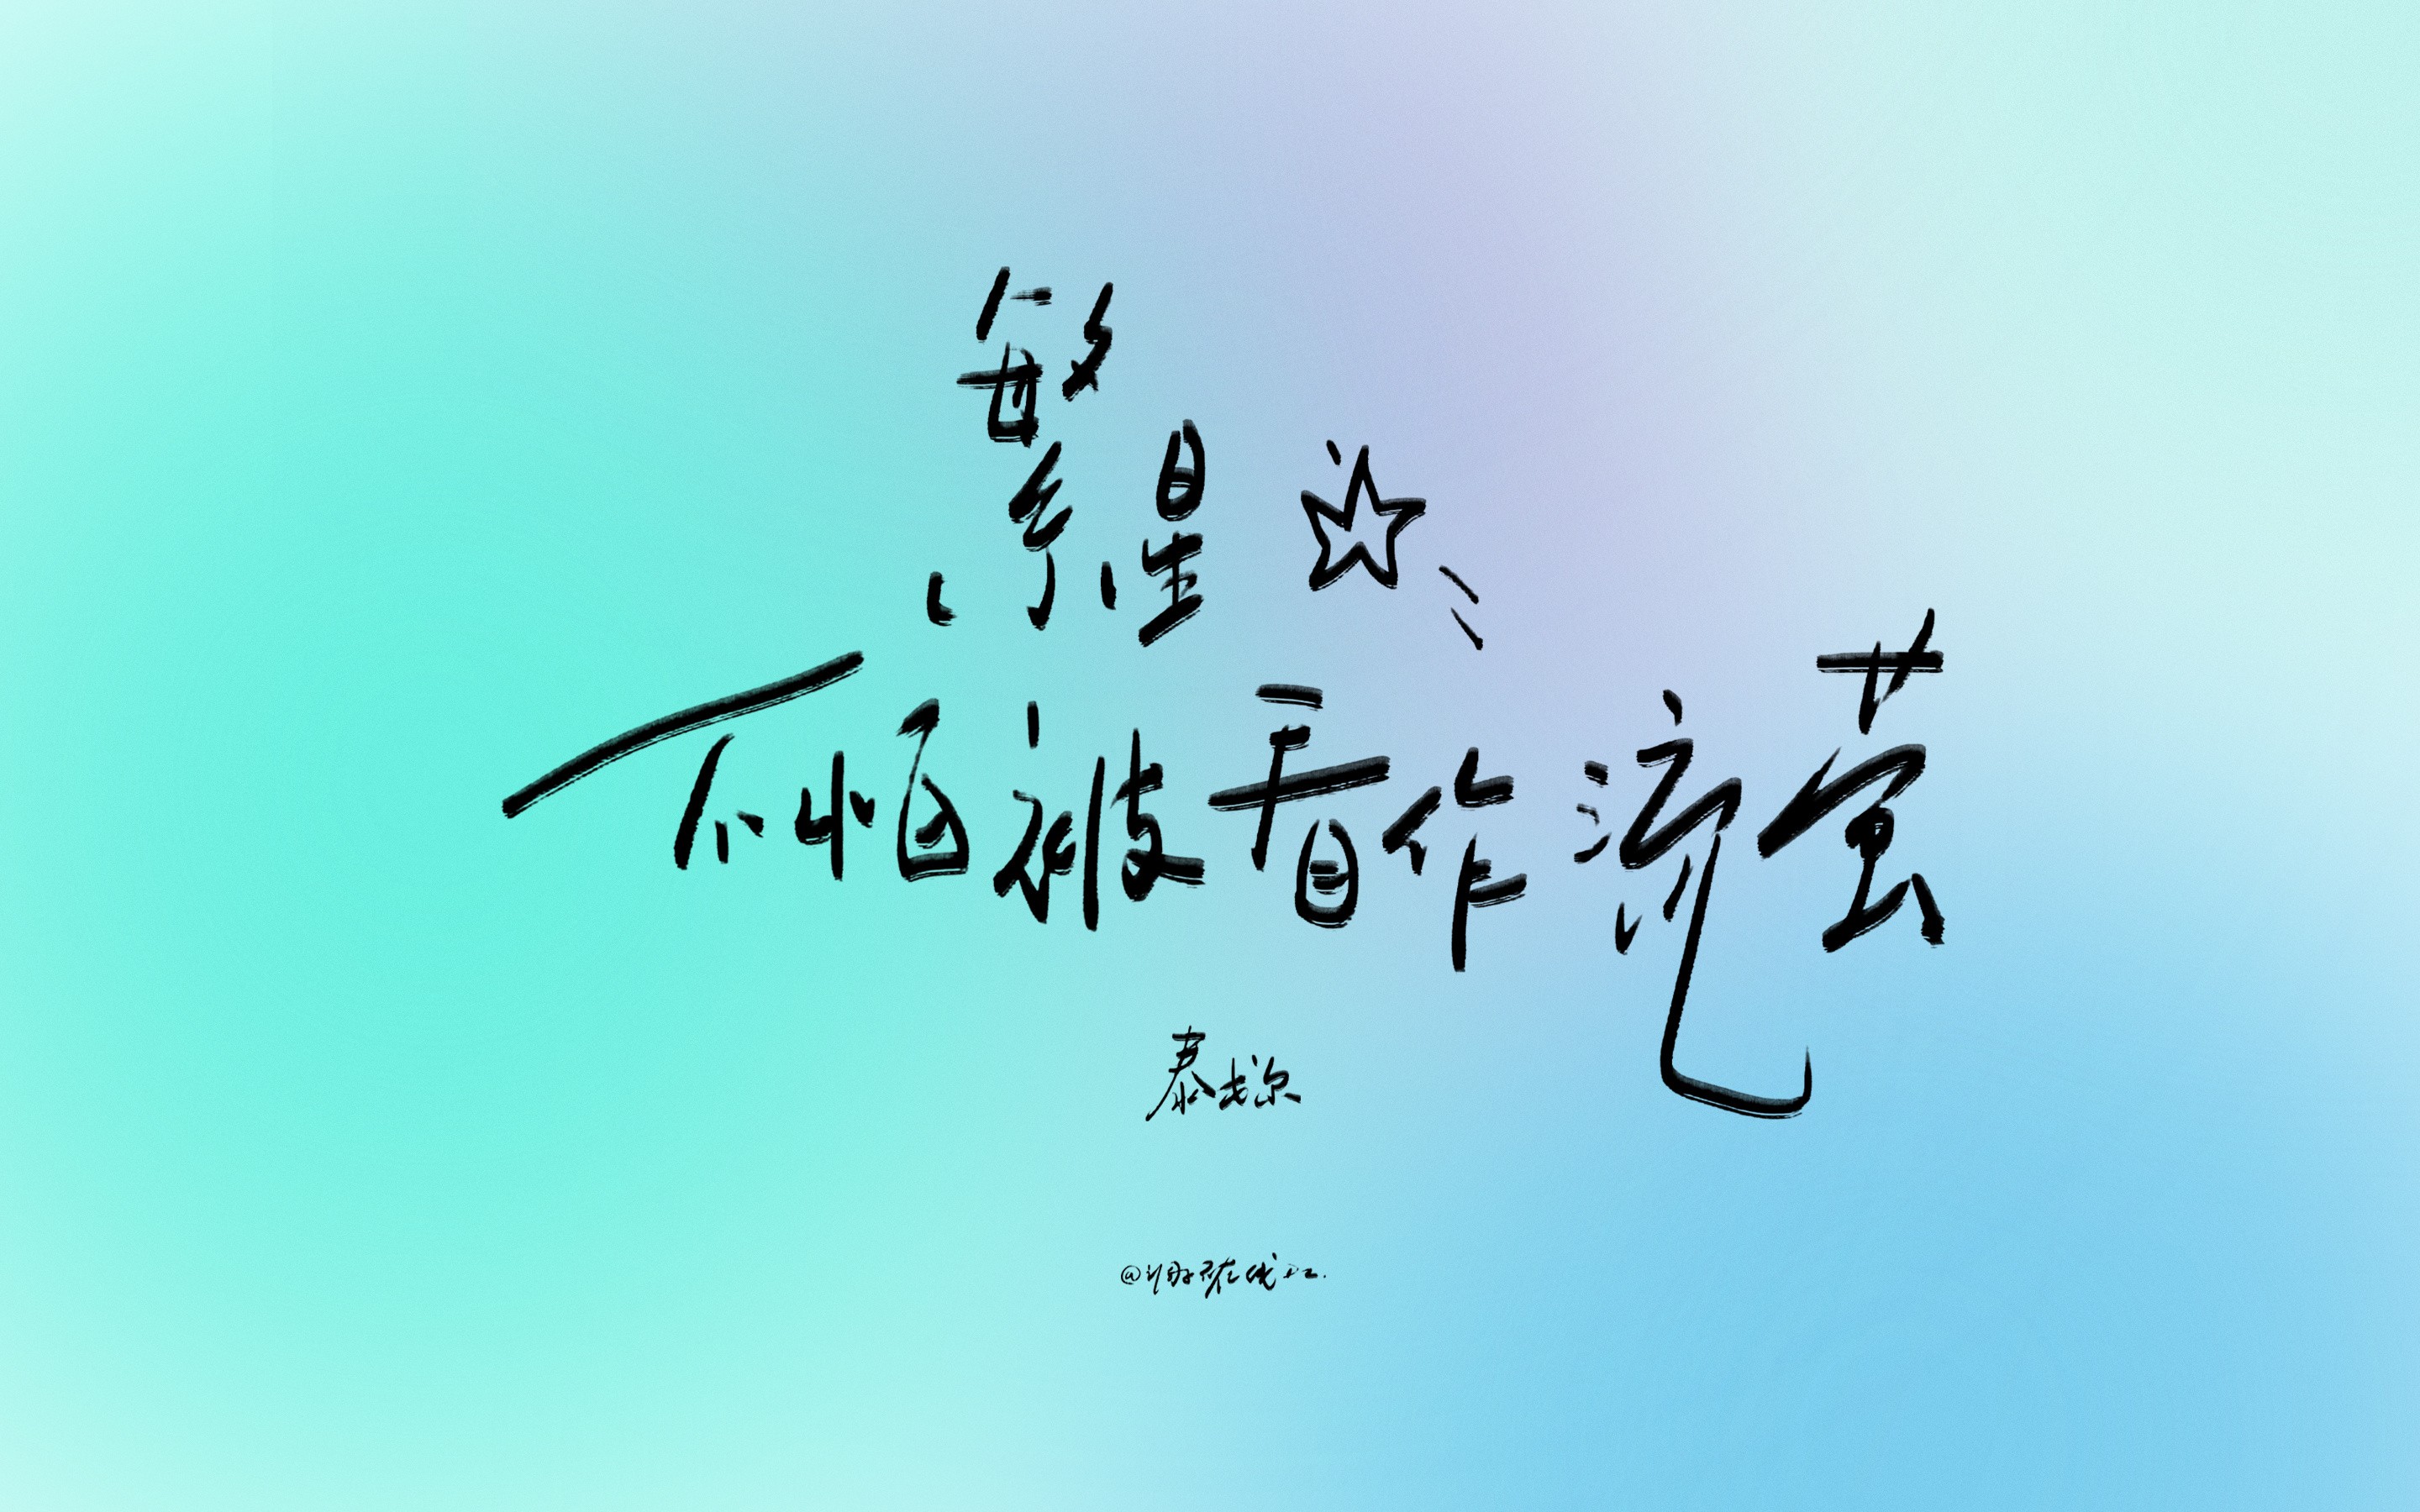 繁星
不怕被看作流萤
泰戈尔